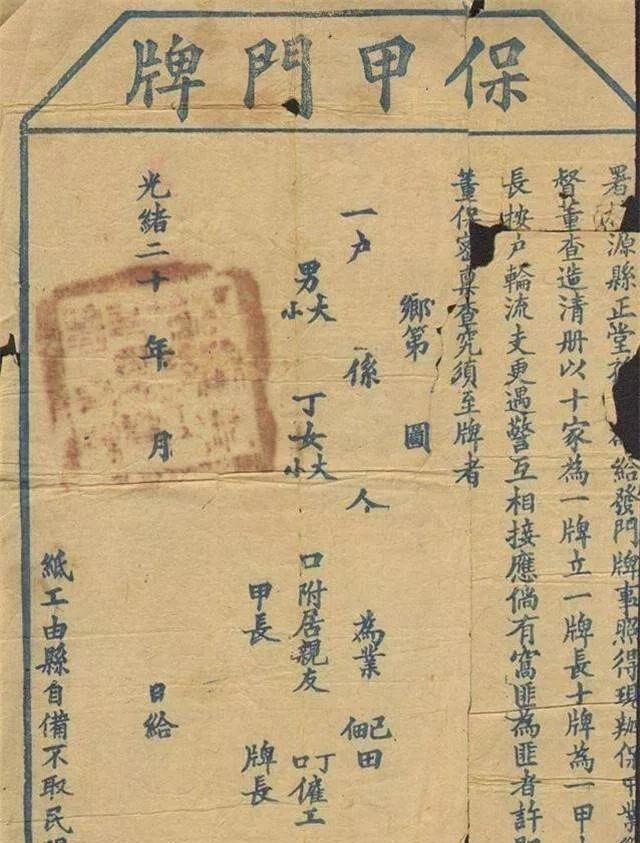 保甲門牌
署源縣正堂給發門牌事照得現辦保甲業
督董查造清册以十家為一牌立一牌長十牌為一甲
長按户輪流支更遇警互相接應倘有窩匪為匪者許
董保密稟查究須至牌者
鄉第 圖
一户 係 人 為業 己佃田
男大小 丁女大小 口附居親友 丁口僱工
甲長 牌長
光緒二十 年 月 日給
紙工由縣自備不取民